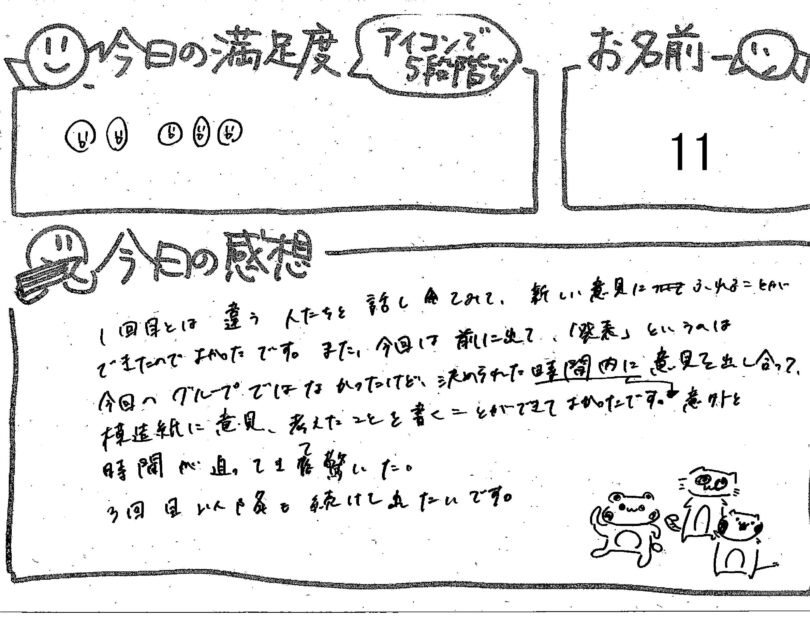 今日の満足度
アイコンで
5段階で
お名前
11
今日の感想
1回目とは違う人たちと話し合てみて、新しい意見にふれることが
できたのでよかったです。また、今回は前に出て、「発表」というのは
今回のグループではなかったけど、決められた時間内に意見を出し合って、
模造紙に意見、考えたことを書くことができてよかったです。意外と
時間が迫って驚いた。
3回目以降も続けてみたいです。